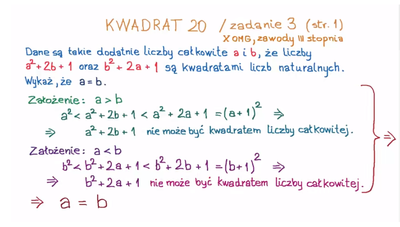 KWADRAT 20 / zadanie 3 (str. 1)
X OMG, zawody III stopnia
Dane są takie dodatnie liczby całkowite a i b, że liczby
a²+2b+1 oraz b²+2a+1 są kwadratami liczb naturalnych.
Wykaż, że a=b.
Założenie: a>b
a² < a²+2b+1 < a²+2a+1 = (a+1)² ⇒
⇒ a²+2b+1 nie może być kwadratem liczby całkowitej.
Założenie: a<b
b² < b²+2a+1 < b²+2b+1 = (b+1)² ⇒
⇒ b²+2a+1 nie może być kwadratem liczby całkowitej.
⇒
⇒ a = b